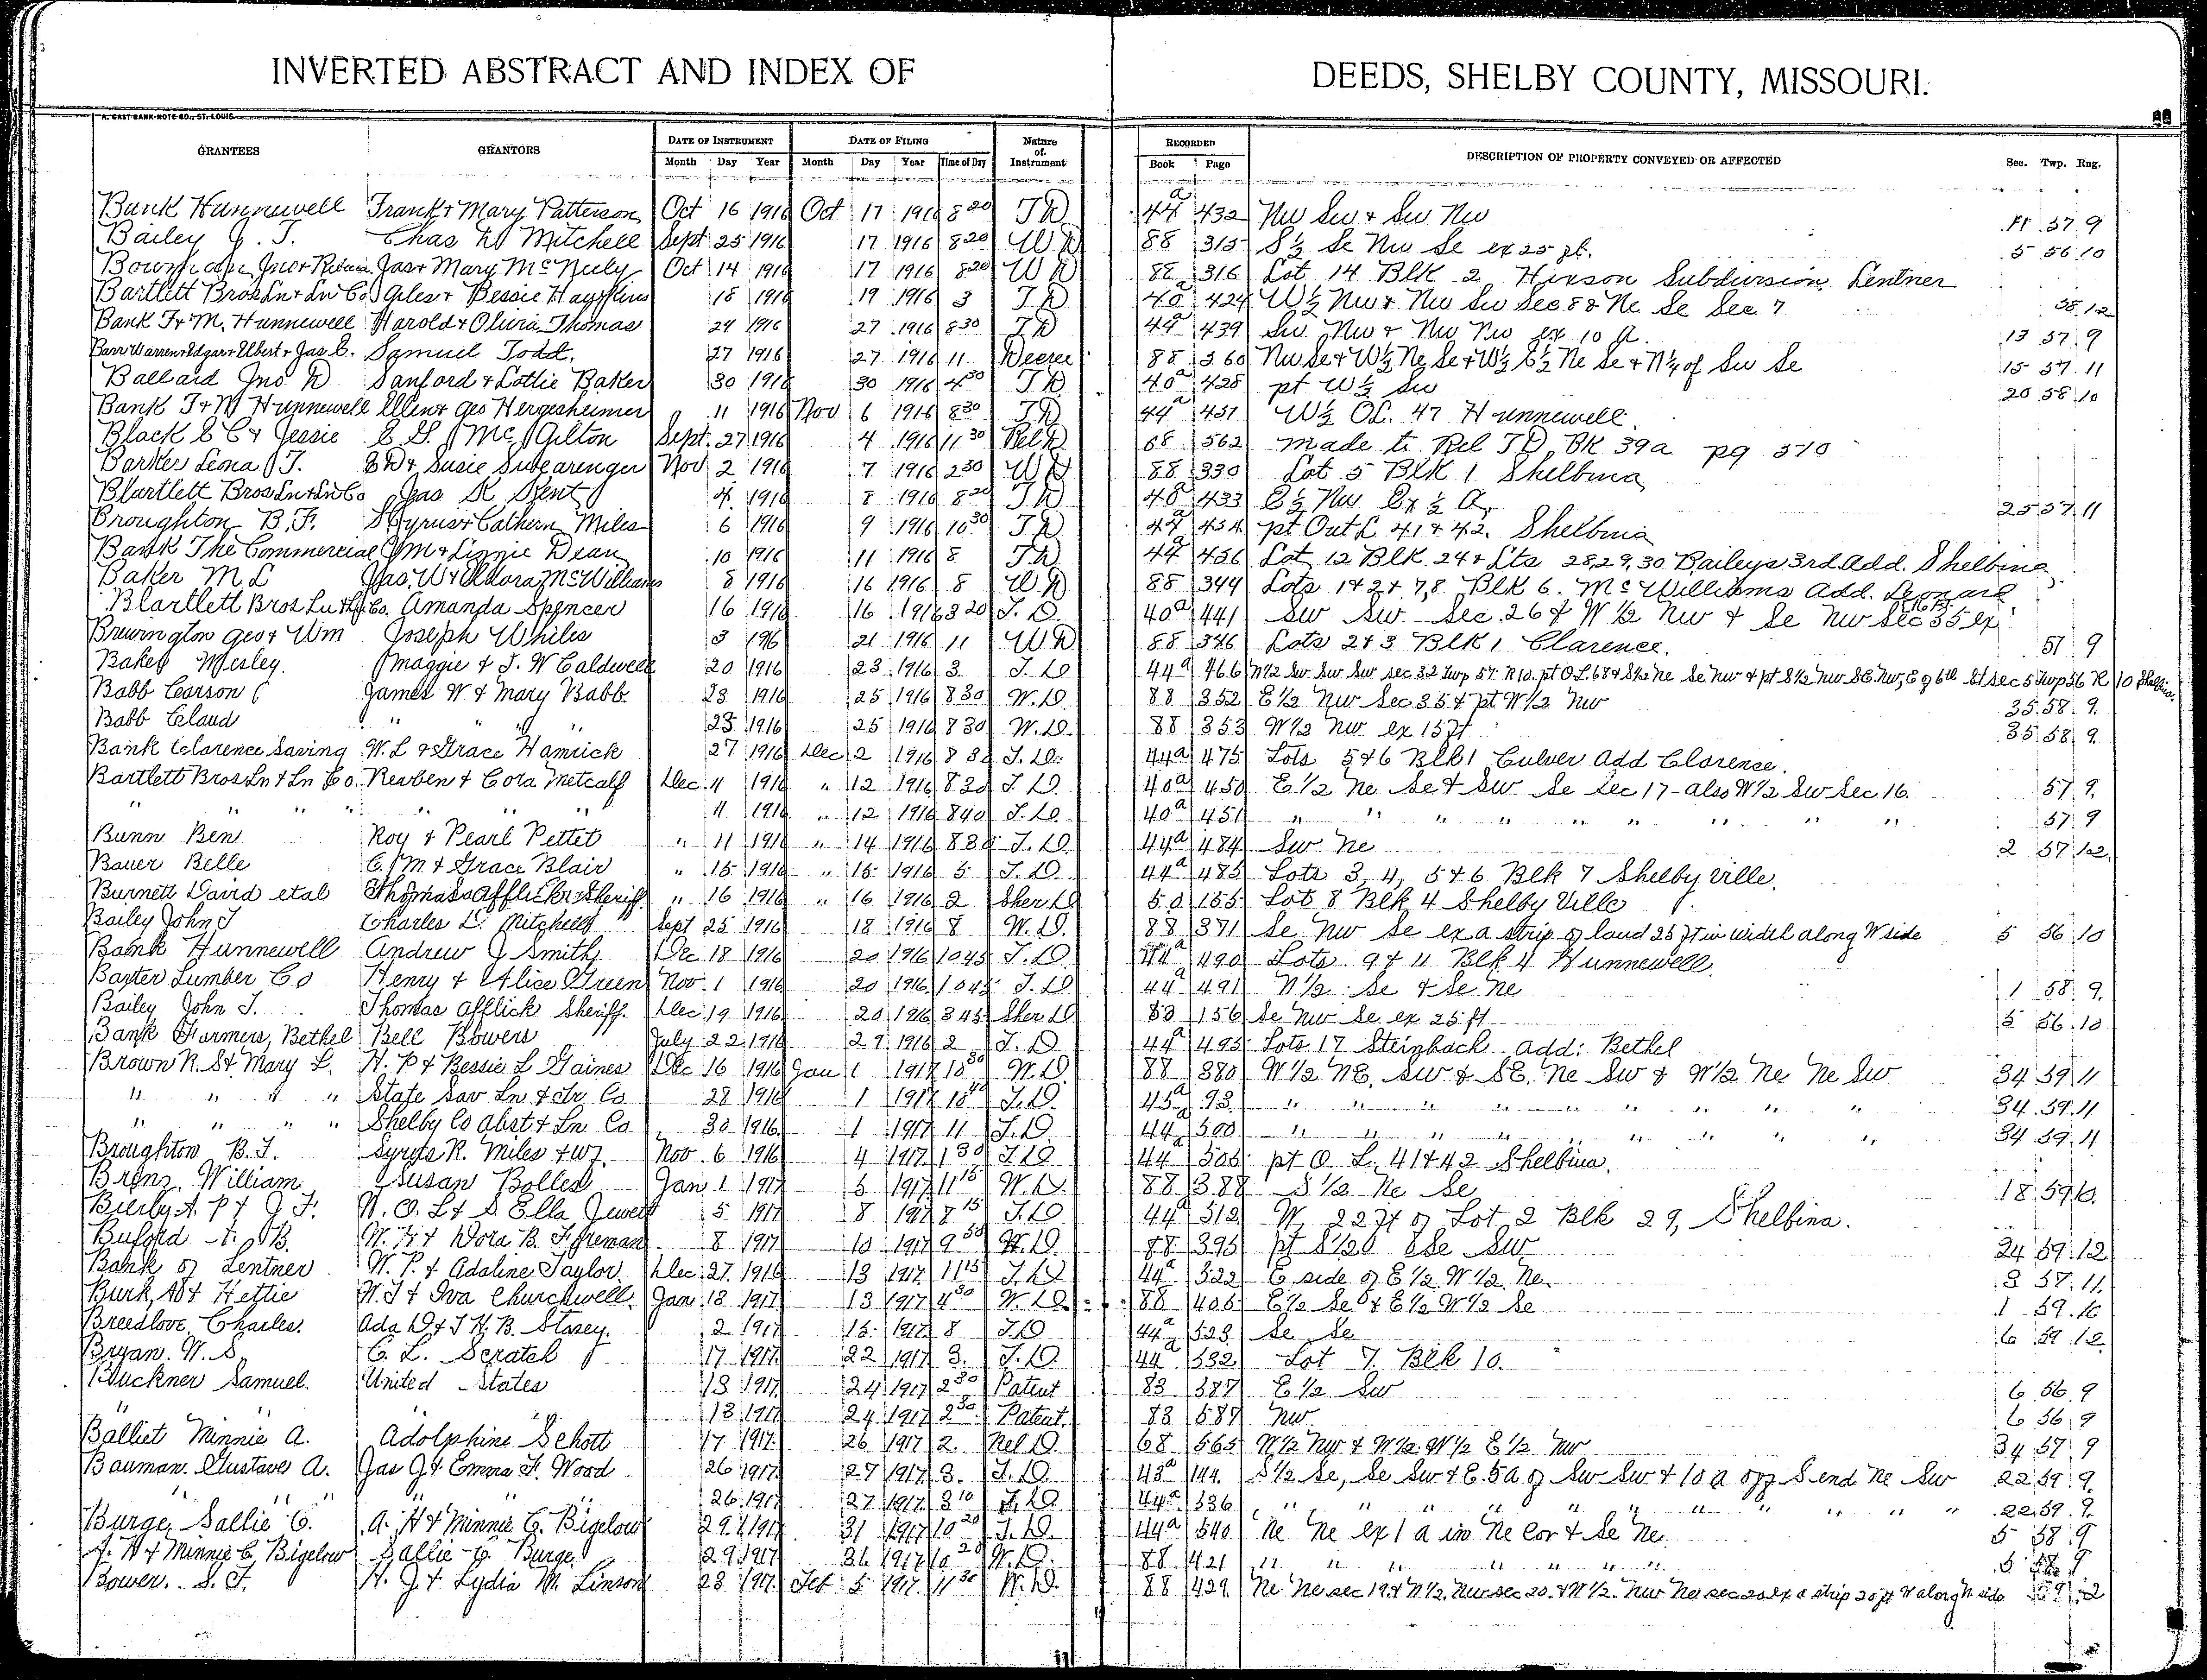 INVERTED ABSTRACT AND INDEX OF DEEDS, SHELBY COUNTY, MISSOURI.
A. GAST BANK-NOTE CO., ST. LOUIS.
GRANTEES GRANTORS DATE OF INSTRUMENT DATE OF FILING Nature of Instrument RECORDED DESCRIPTION OF PROPERTY CONVEYED OR AFFECTED Sec. Twp. Rng.
Month Day Year Month Day Year Time of Day Book Page
Bank Hunnewell Frank & Mary Patterson Oct 16 1916 Oct 17 1916 8 20 T D 44a 432 Nw Sw & Sw Nw 11 57 9
Bailey J. T. Chas W Mitchell Sept 25 1916 17 1916 8 20 W D 88 315 S½ Se Nw Se ex 25 ft. 5 56 10
Jno & Jas & Mary McNeely Oct 14 1916 17 1916 8 20 W D 88 316 Lot 14 Blk 2 Hixson Subdivision Lentner
Bartlett Bros Ln & Ln Co Giles & Bessie 18 1916 19 1916 3 T D 40a 424 W½ Nw & Nw Sw Sec 8 & Ne Se Sec 7 58 12
Bank F & M. Hunnewell Harold & Olivia Thomas 24 1916 27 1916 8 30 T D 44a 439 Sw Nw & Nw Nw ex 10 a. 13 57 9
Barr Warren & Edgar & Elbert & Jas C. Samuel Todd. 27 1916 27 1916 11 Decree 88 360 Nw Se & W½ Ne Se & W½ E½ Ne Se & N¼ of Sw Se 15 57 11
Ballard Jno D Sanford & Lottie Baker 30 1916 30 1916 4 30 T D 40a 428 pt W½ Sw 20 58 10
Bank F & M Hunnewell Ellen & Geo Hergesheimer 11 1916 Nov 6 1916 8 30 T D 44a 451 W½ OL. 47 Hunnewell.
Black E C & Jessie E G. McGilton Sept. 27 1916 4 1916 11 30 Rel D 68 562 made to Rel TD BK 39a pg 570
Barker Leona J. T. E D & Susie Swearenger Nov 2 1916 7 1916 2 30 W D 88 330 Lot 5 Blk 1 Shelbina
Blartlett Bros Ln & Ln Co Jas K Kent 4 1916 8 1916 8 20 T D 40a 433 E½ Nw Ex ½ a. 25 57 11
Broughton B. F. Syrus & Cathern Miles 6 1916 9 1916 10 30 T D 44a 454 pt Out L 41 & 42. Shelbina
Bank The Commercial J M & Lizzie Dean 10 1916 11 1916 8 T D 44a 456 Lot 12 Blk 24 & Lts 28, 29, 30 Baileys 3rd Add. Shelbina
Baker M L Jas. W & Aldora McWilliams 8 1916 16 1916 8 W D 88 344 Lots 1 & 2 & 7, 8 Blk 6. McWilliams Add. Leonard
Blartlett Bros Ln & Ln Co. Amanda Spencer 16 1916 16 1916 8 20 T. D. 40a 441 Sw Sw Sec. 26 & W ½ Nw & Se Nw Sec 35 ex
Brewington Geo & Wm Joseph Whiles 3 1916 21 1916 11 W D 88 346 Lots 2 & 3 Blk 1 Clarence. 57 9
Baker Wesley. Maggie & J. W Caldwell 20 1916 23 1916 3. T. D 44a 466 N½ Sw Sw Sw sec 32 Twp 57 R 10. pt O L 68 & S½ Ne Se Nw & pt S½ Nw SE Nw, E of 6th St sec 5 Twp 56 R 10 Shelbina
Babb Carson C James W & Mary Babb. 23 1916 25 1916 8 30 W. D. 88 352 E½ Nw Sec. 35 & pt W½ Nw 35 58 9
Babb Claud " " " " 23 1916 25 1916 8 30 W. D. 88 353 W½ Nw ex 15 ft 35 58 9
Bank Clarence Saving W. L & Grace Hamrick 27 1916 Dec 2 1916 8 30 T. D. 44a 475 Lots 5 & 6 Blk 1 Culver Add Clarence.
Bartlett Bros Ln & Ln Co. Reuben & Cora Metcalf Dec 11 1916 " 12 1916 8 30 T. D 40a 450 E½ Ne Se & Sw Se Sec 17 - also W½ Sw Sec 16. 57 9
" " " " " " " 11 1916 " 12 1916 8 40 T. D. 40a 451 " " " " " " " " " 57 9
Bunn Ben Roy & Pearl Pettet " 11 1916 " 14 1916 8 30 T. D. 44a 484 Sw Ne 2 57 12
Bauer Belle C. M & Grace Blair " 15 1916 " 15 1916 5 T. D. 44a 485 Lots 3, 4, 5 & 6 Blk 7 Shelbyville.
Burnett David etal Thomas Afflick Sheriff " 16 1916 " 16 1916 2 Sher D 50 155 Lot 8 Blk 4 Shelby Ville
Bailey John J Charles L. Mitchell Sept 25 1916 18 1916 8 W. D. 88 371 Se Nw Se ex a strip of land 25 ft in width along W side 5 56 10
Bank Hunnewell Andrew J Smith Dec 18 1916 20 1916 10 45 T. D 44a 490 Lots 9 & 11 Blk 4 Hunnewell.
Baxter Lumber Co Henry & Alice Green Nov 1 1916 20 1916 10 45 T. D 44a 491 N½ Se & Se Ne 1 58 9
Bailey John T. Thomas Afflick Sheriff. Dec 19 1916 20 1916 3 45 Sher D 53 156 Se Nw Se ex 25 ft 5 56 10
Bank Farmers, Bethel Bell Bowers July 22 1916 29 1916 2 T. D 44a 495 Lots 17 Steinbach Add: Bethel
Brown R. S & Mary L. H. P & Bessie L Gaines Dec 16 1916 Jan 1 1917 10 30 W. D 88 380 W½ NE. SW & SE. Ne Sw & W½ Ne Ne Sw 34 59 11
" " " " State Sav Ln & Tr Co 28 1916 1 1917 10 40 T. D. 45a 93 " " " " " " " " 34 59 11
" " " " Shelby Co Abst & Ln Co 30 1916 1 1917 11 T. D. 44a 500 " " " " " " " " 34 59 11
Broughton B. F. Syrus R. Miles & wf. Nov 6 1916 4 1917 1 30 T. D 44 505 pt O. L. 41 & 42 Shelbina.
Brenz. William Susan Bolles Jan 1 1917 5 1917 11 15 W. D. 88 388 S½ Ne Se 18 59 10
Bierly A. P & J F. W. O. L & S Ella Jewett 5 1917 8 1917 8 15 T. D 44a 512 W. 22 ft of Lot 2 Blk 29, Shelbina.
Buford A. B. W. H & Dora B. 8 1917 10 1917 9 30 W. D. 88 395 pt Se Sw 24 59 12
Bank of Lentner W. P. & Adaline Taylor. Dec 27 1916 13 1917 11 15 T. D. 44a 522 E side of E½ W½ Ne. 3 57 11
Burk, & Hettie W. T & Iva Churchwell. Jan 13 1917 13 1917 4 30 W. D. 88 406 E½ Se & E½ W½ Se 1 59 10
Breedlove, Charles. Ada D & J H. B. Stacey. 2 1917 15 1917 8 T. D 44a 523 Se Se 6 59 12
Bryan. W. S. C. L. Scratch 17 1917 22 1917 3. T. D. 44a 532 Lot 7. Blk 10.
Buckner Samuel. United States 13 1917 24 1917 2 30 Patent 83 587 E½ Sw 6 56 9
" " " " 13 1917 24 1917 2 30 Patent. 83 587 Nw. 6 56 9
Balliet Minnie A. Adolphine Schott 17 1917 26 1917 2. Rel D. 68 565 N½ Nw & W½ W½ E½ Nw 34 57 9
Bauman. Gustave A. Jas J & Emma F. Wood 26 1917 27 1917 3. T. D. 43a 144 S½ Se, Se Sw & E. 5a of Sw Sw & 10 a off S end Ne Sw 22 59 9
" " " " " 26 1917 27 1917 3 10 T. D 44a 536 " " " " " " " " " " 22 59 9
Burge, Sallie C. A. H & Minnie C. Bigelow 29 1917 31 1917 10 20 T. D. 44a 540 Ne Ne ex 1 a in Ne Cor & Se Ne 5 58 9
A. H & Minnie C. Bigelow Sallie C. Burge 29 1917 31 1917 10 20 W. D. 88 421 " " " " " " " 5 58 9
Bower. S. F. H. J & Lydia M. Linson 23 1917 Feb 5 1917 11 30 W. D. 88 429 Ne Ne sec 19 & N½. Nw sec 20. & N½. Nw Ne sec 20 ex a strip 20 ft W along N side 59 12